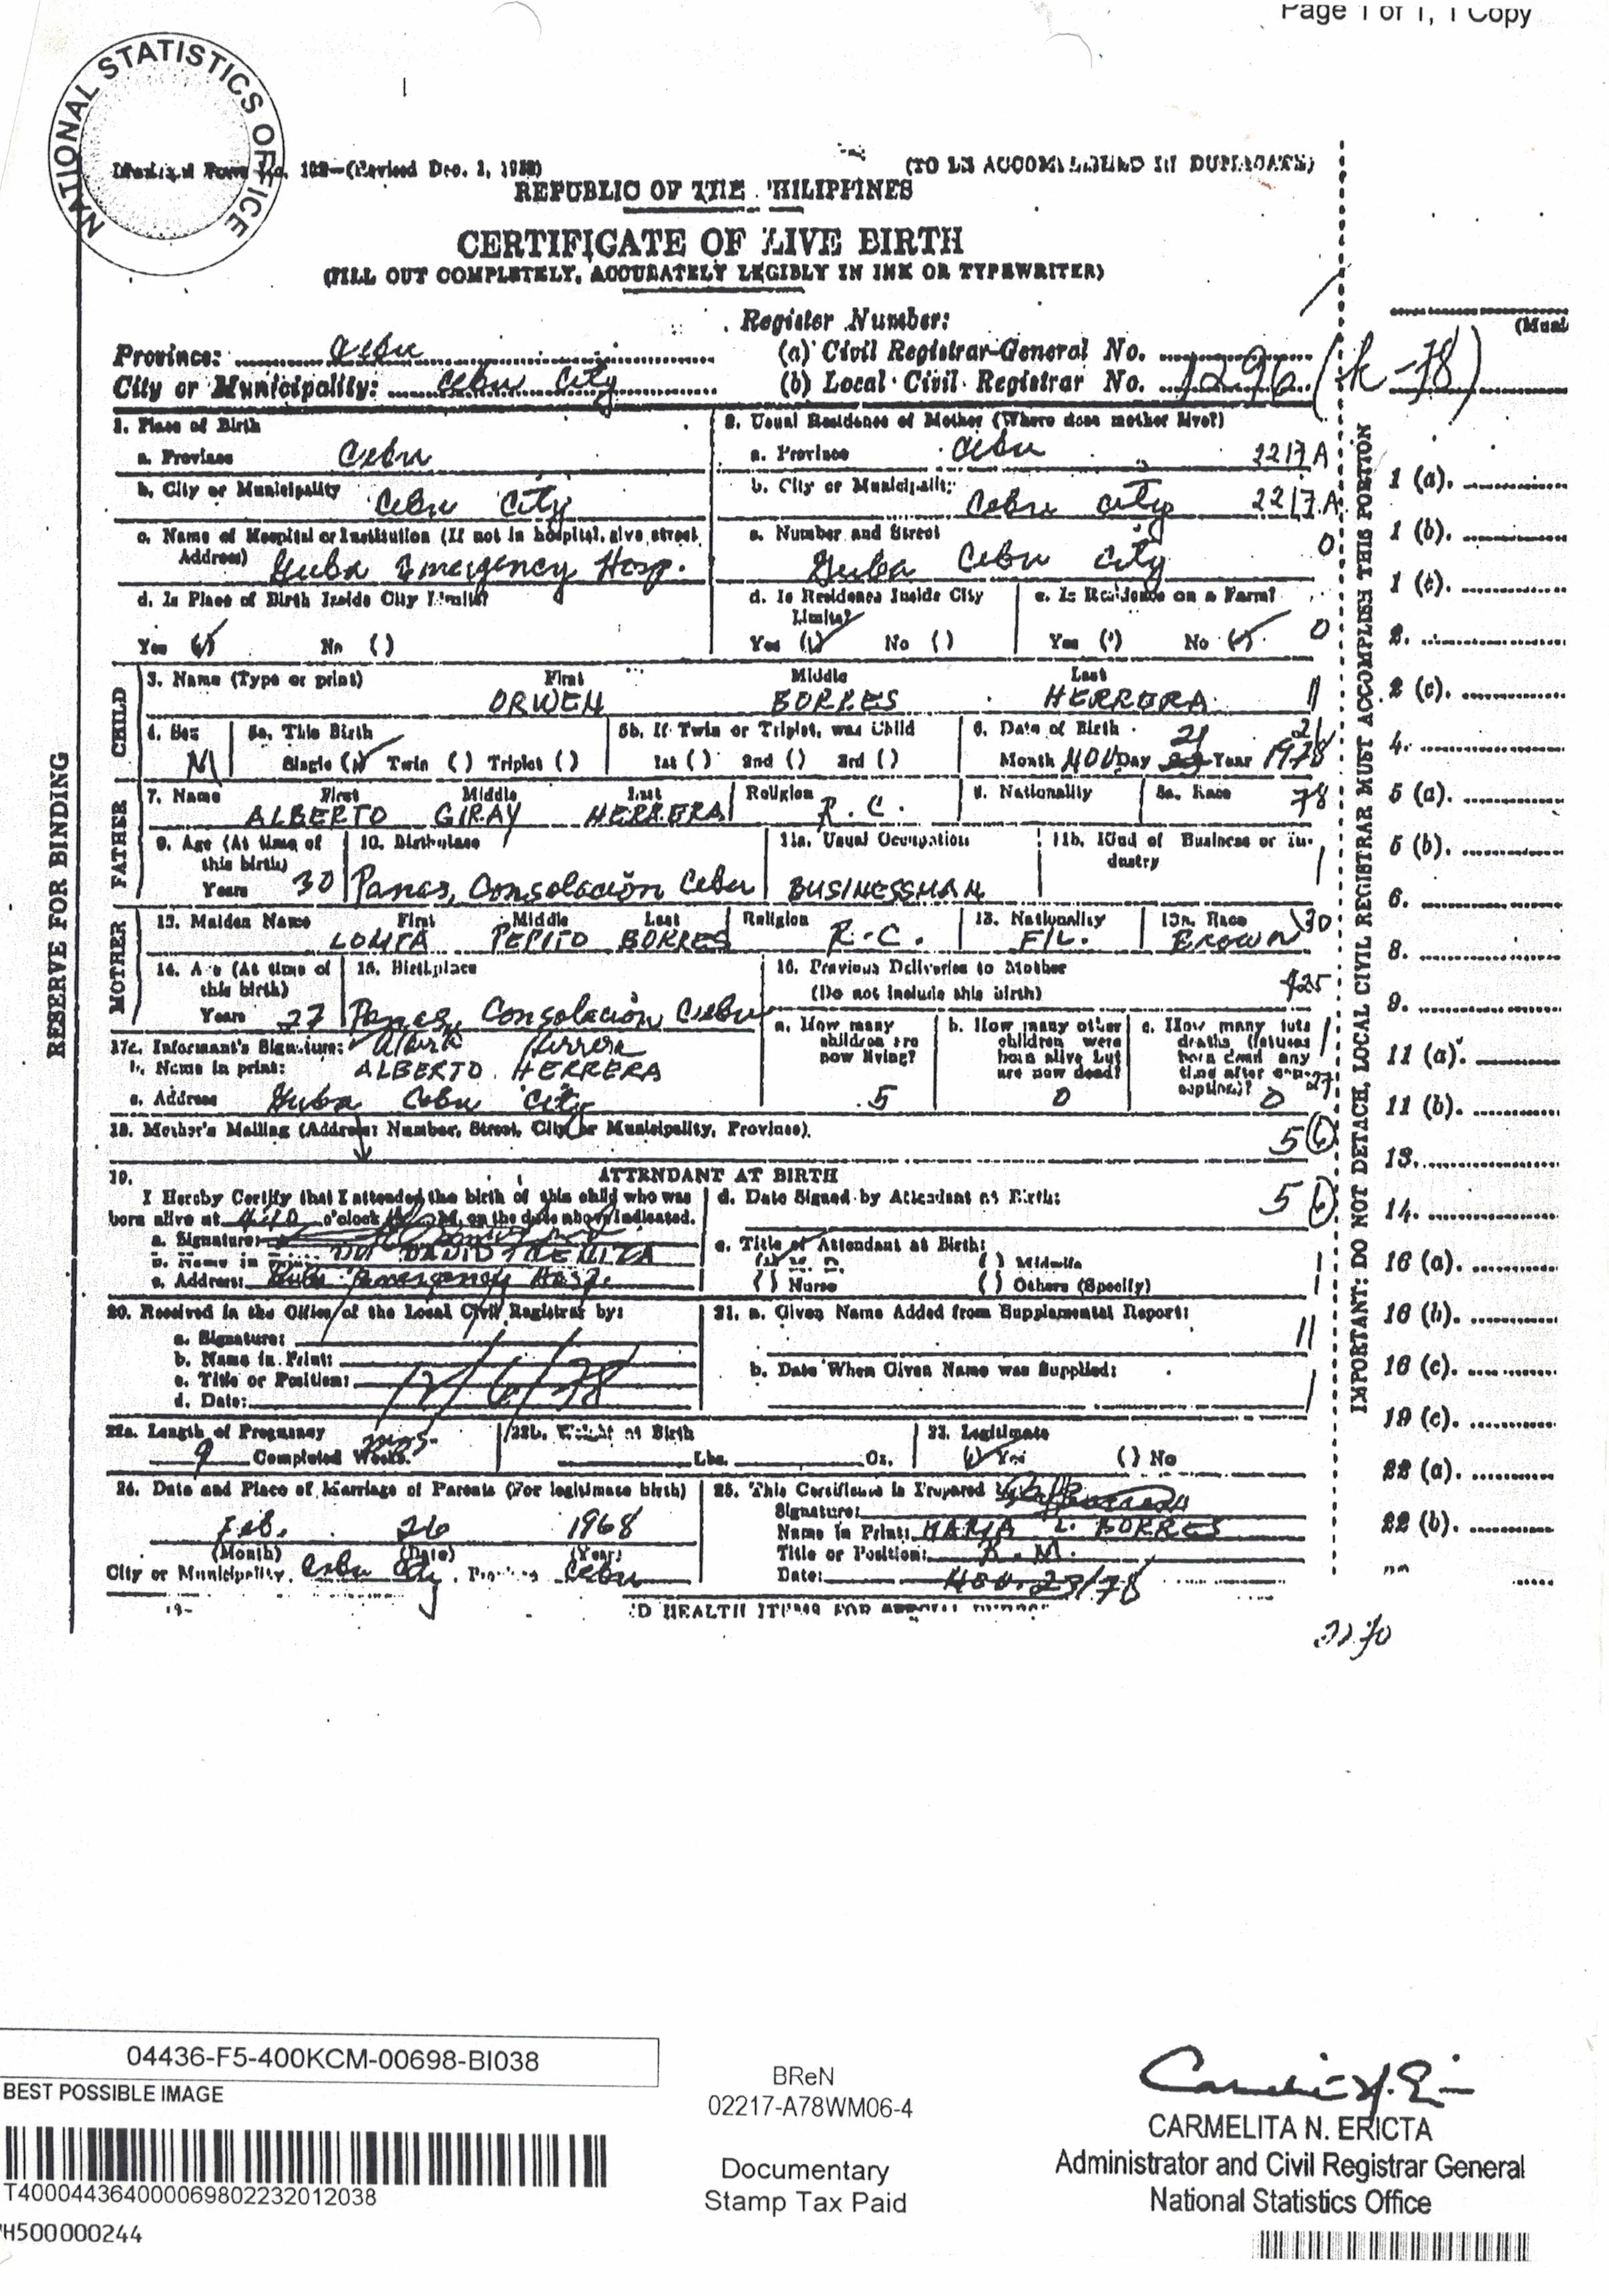 Page 1 of 1, 1 Copy
NATIONAL STATISTICS OFFICE
102—(Revised Dec. 1, 1958) (TO BE ACCOMPLISHED IN DUPLICATE)
REPUBLIC OF THE PHILIPPINES
CERTIFICATE OF LIVE BIRTH
(FILL OUT COMPLETELY, ACCURATELY LEGIBLY IN INK OR TYPEWRITER)
Register Number:
(Mual
Province: Cebu (a) Civil Registrar-General No.
City or Municipality: Cebu City (b) Local Civil Registrar No. 1296 (k-78)
1. Place of Birth 2. Usual Residence of Mother (Where does mother live?)
a. Province Cebu a. Province Cebu 2217A
b. City or Municipality Cebu City b. City or Municipality Cebu City 2217A
c. Name of Hospital or Institution (If not in hospital, give street Address) Guba Emergency Hosp. c. Number and Street Guba Cebu City 0
d. Is Place of Birth Inside City Limits? d. Is Residence Inside City Limits? e. Is Residence on a Farm?
Yes (✓) No ( ) Yes (✓) No ( ) Yes ( ) No (✓) 0
CHILD
3. Name (Type or print) First Middle Last
ORWEN BORRES HERRERA
4. Sex 5a. This Birth 5b. If Twin or Triplet, was Child 6. Date of Birth 21 21
M Single (✓) Twin ( ) Triplet ( ) 1st ( ) 2nd ( ) 3rd ( ) Month NOV Day Year 1978
FATHER
7. Name First Middle Last Religion 8. Nationality 8a. Race 78
ALBERTO GIRAY HERRERA R. C.
9. Age (At time of this birth) 10. Birthplace 11a. Usual Occupation 11b. Kind of Business or Industry
Years 30 Panas, Consolacion Cebu BUSINESSMAN
MOTHER
12. Maiden Name First Middle Last Religion 13. Nationality 13a. Race 30
LOLITA PEPITO BORRES R.C. FIL. BROWN
14. Age (At time of this birth) 15. Birthplace 16. Previous Deliveries to Mother
(Do not include this birth)
Years 27 Panas, Consolacion Cebu
a. How many children are now living? 5
b. How many other children were born alive but are now dead? 0
c. How many fetal deaths (fetuses born dead any time after conception)? 0
27
17a. Informant's Signature: Alberto Herrera
b. Name in print: ALBERTO HERRERA
c. Address Guba Cebu City
18. Mother's Mailing (Address: Number, Street, City or Municipality, Province). 5 6
19. ATTENDANT AT BIRTH
I Hereby Certify that I attended the birth of this child who was d. Date Signed by Attendant at Birth: 5 6
born alive at o'clock M, on the date above indicated.
a. Signature: e. Title of Attendant at Birth:
b. Name in DAVID (✓) M. D. ( ) Midwife
c. Address: Guba Emergency Hosp. ( ) Nurse ( ) Others (Specify)
20. Received in the Office of the Local Civil Registrar by: 21. a. Given Name Added from Supplemental Report:
a. Signature:
b. Name in Print:
c. Title or Position: b. Date When Given Name was Supplied:
d. Date: 12/6/78
22a. Length of Pregnancy 22b. Weight at Birth 23. Legitimate
9 Completed Weeks. mos. Lbs. Oz. (✓) Yes ( ) No
24. Date and Place of Marriage of Parents (For legitimate birth) 25. This Certificate is Prepared
Signature:
Feb. 26 1968 Name in Print: MARIA L. BORRES
(Month) (Date) (Year) Title or Position: R.M.
City or Municipality, Cebu City, Province Cebu Date: NOV. 23/78
RESERVE FOR BINDING
IMPORTANT: DO NOT DETACH, LOCAL CIVIL REGISTRAR MUST ACCOMPLISH THIS PORTION
1 (a).
1 (b).
1 (c).
2.
2 (c).
4.
5 (a).
5 (b).
6.
8.
9.
11 (a).
11 (b).
13.
14.
16 (a).
16 (b).
16 (c).
19 (c).
22 (a).
22 (b).
04436-F5-400KCM-00698-BI038
BEST POSSIBLE IMAGE
T400044364000069802232012038
H500000244
BReN
02217-A78WM06-4
Documentary
Stamp Tax Paid
CARMELITA N. ERICTA
Administrator and Civil Registrar General
National Statistics Office